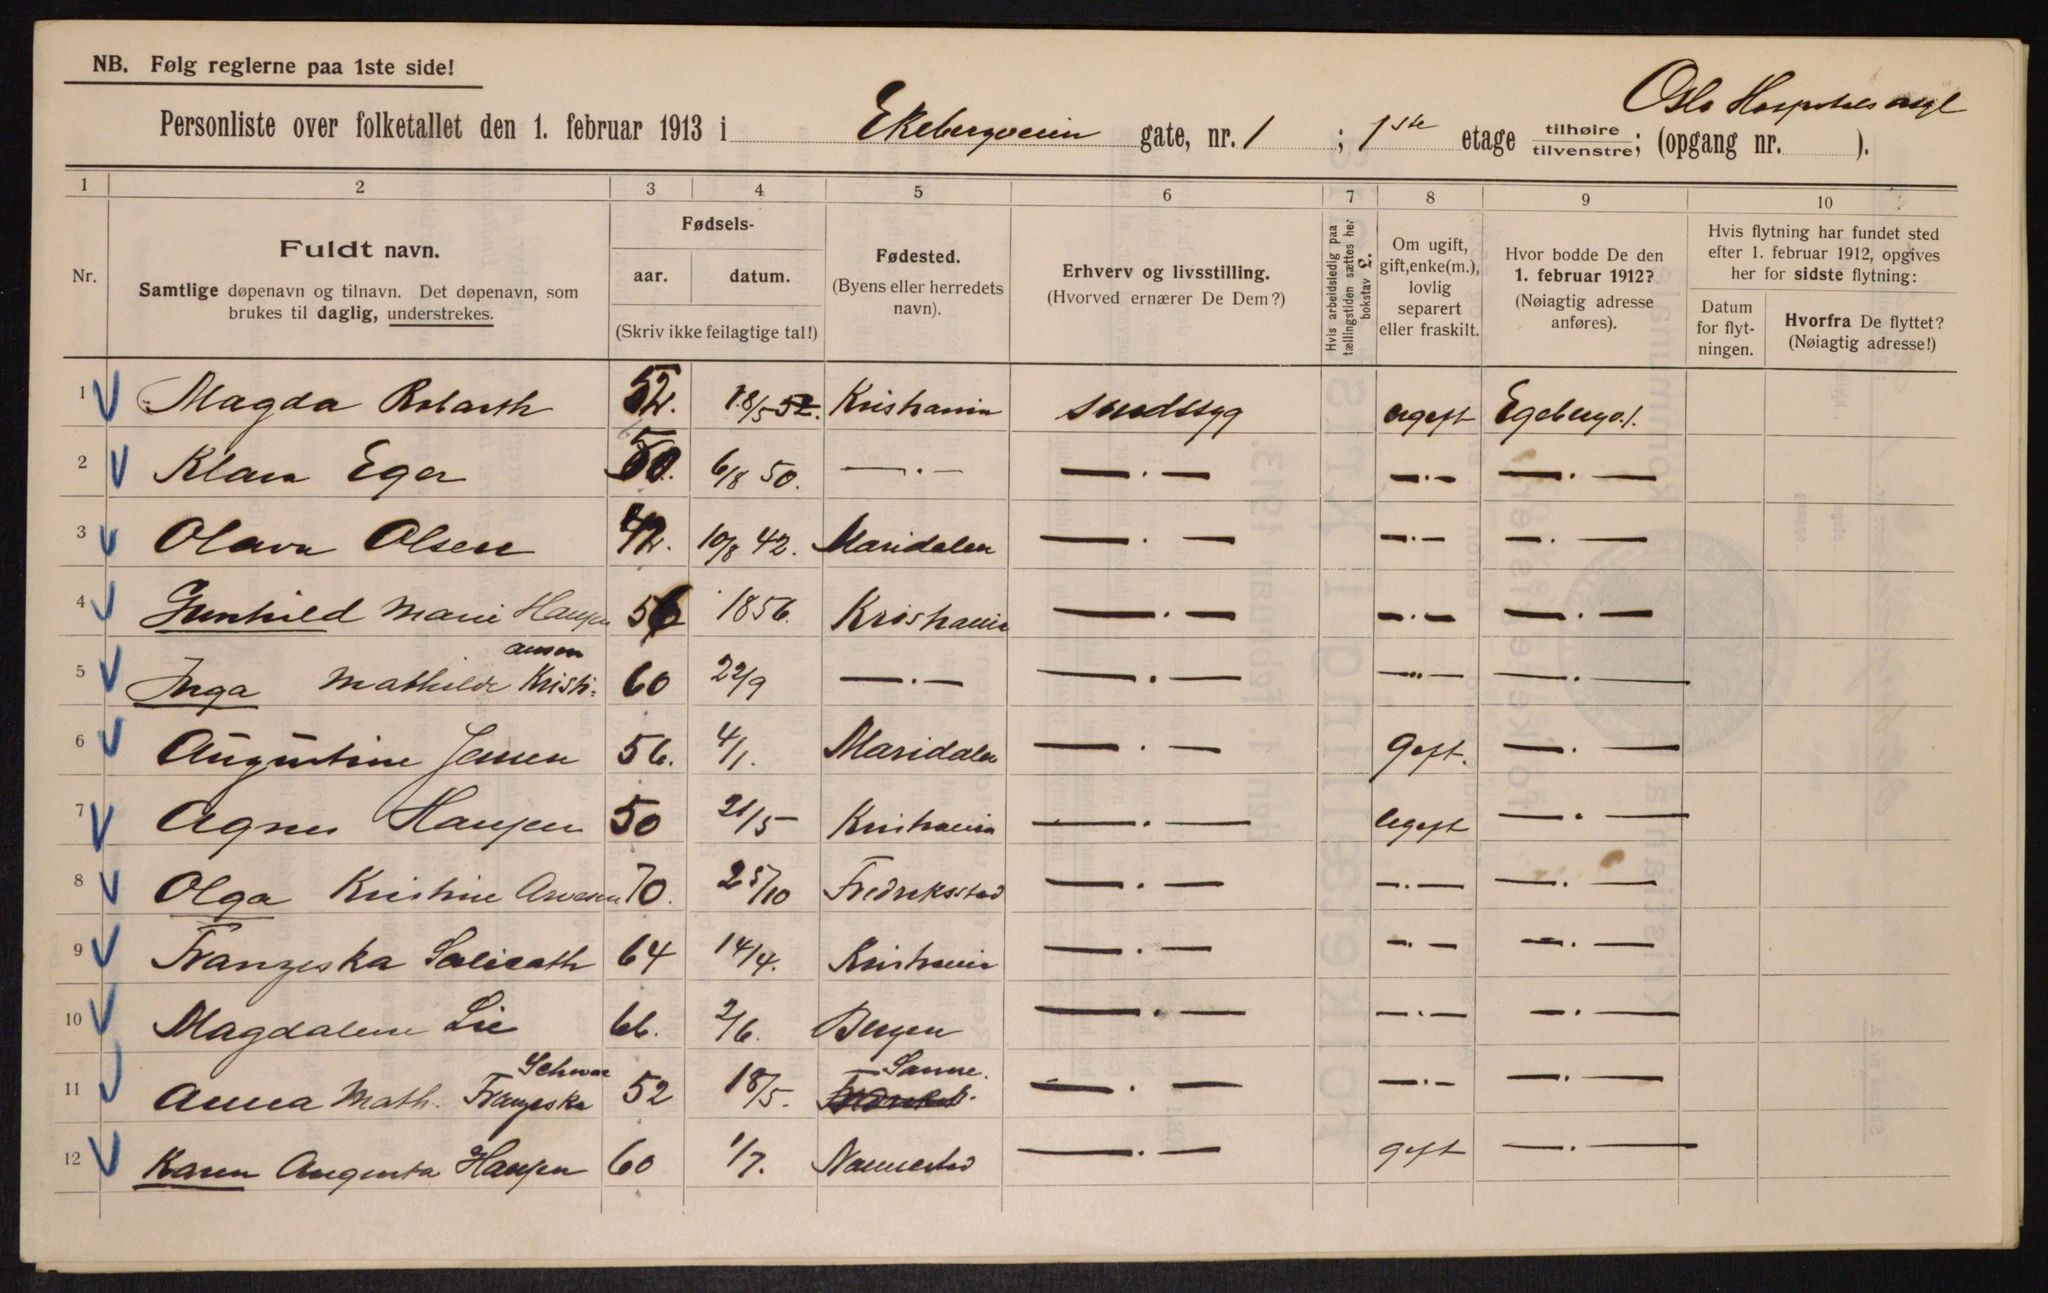 NB. Følg reglerne paa 1ste side!
Oslo Hospitals asyl
Personliste over folketallet den 1. februar 1913 i Ekebergveien gate, nr. 1 ; 1ste etage tilhøire tilvenstre; (opgang nr. ).
1 2 3 4 5 6 7 8 9 10
Nr.
Fuldt navn.
Samtlige døpenavn og tilnavn. Det døpenavn, som
brukes til daglig, understrekes.
Fødsels-
aar. datum.
(Skriv ikke feilagtige tal!)
Fødested.
(Byens eller herredets
navn).
Erhverv og livsstilling.
(Hvorved ernærer De Dem?)
Hvis arbeidsledig paa
tællingstiden sættes her
bokstav L.
Om ugift,
gift, enke(m.),
lovlig
separert
eller fraskilt.
Hvor bodde De den
1. februar 1912?
(Nøiagtig adresse
anføres).
Hvis flytning har fundet sted
efter 1. februar 1912, opgives
her for sidste flytning:
Datum
for flyt-
ningen.
Hvorfra De flyttet?
(Nøiagtig adresse!)
1 Magda Robarth 52. 18/5 52. Kristiania sindssyg ugift Egebergv. 1.
2 Klara Eger 50. 6/8 50. —.— —.— —.— —.—
3 Olava Olsen 42. 10/8 42. Maridalen —.— —.— —.—
4 Gunhild Marie Hansen 56 1856. Kristiania —.— —.— —.—
5 Inga Mathilde Kristi-ansen 60 22/9 —.— —.— —.— —.—
6 Augustine Jensen 56. 4/1. Maridalen —.— gift. —.—
7 Agnes Hansen 50 21/5 Kristiania —.— ugift —.—
8 Olga Kristine Arvesen 70. 25/10 Fredriksstad —.— —.— —.—
9 Franzeska Salicath 64 14/4. Kristiania —.— —.— —.—
10 Magdalene Lie 66. 2/6. Bergen —.— —.— —.—
11 Anna Math. Franzeska 52 18/5. Sanne. —.— —.— —.—
12 Karen Augusta Hansen 60 1/7. Nannestad —.— gift —.—